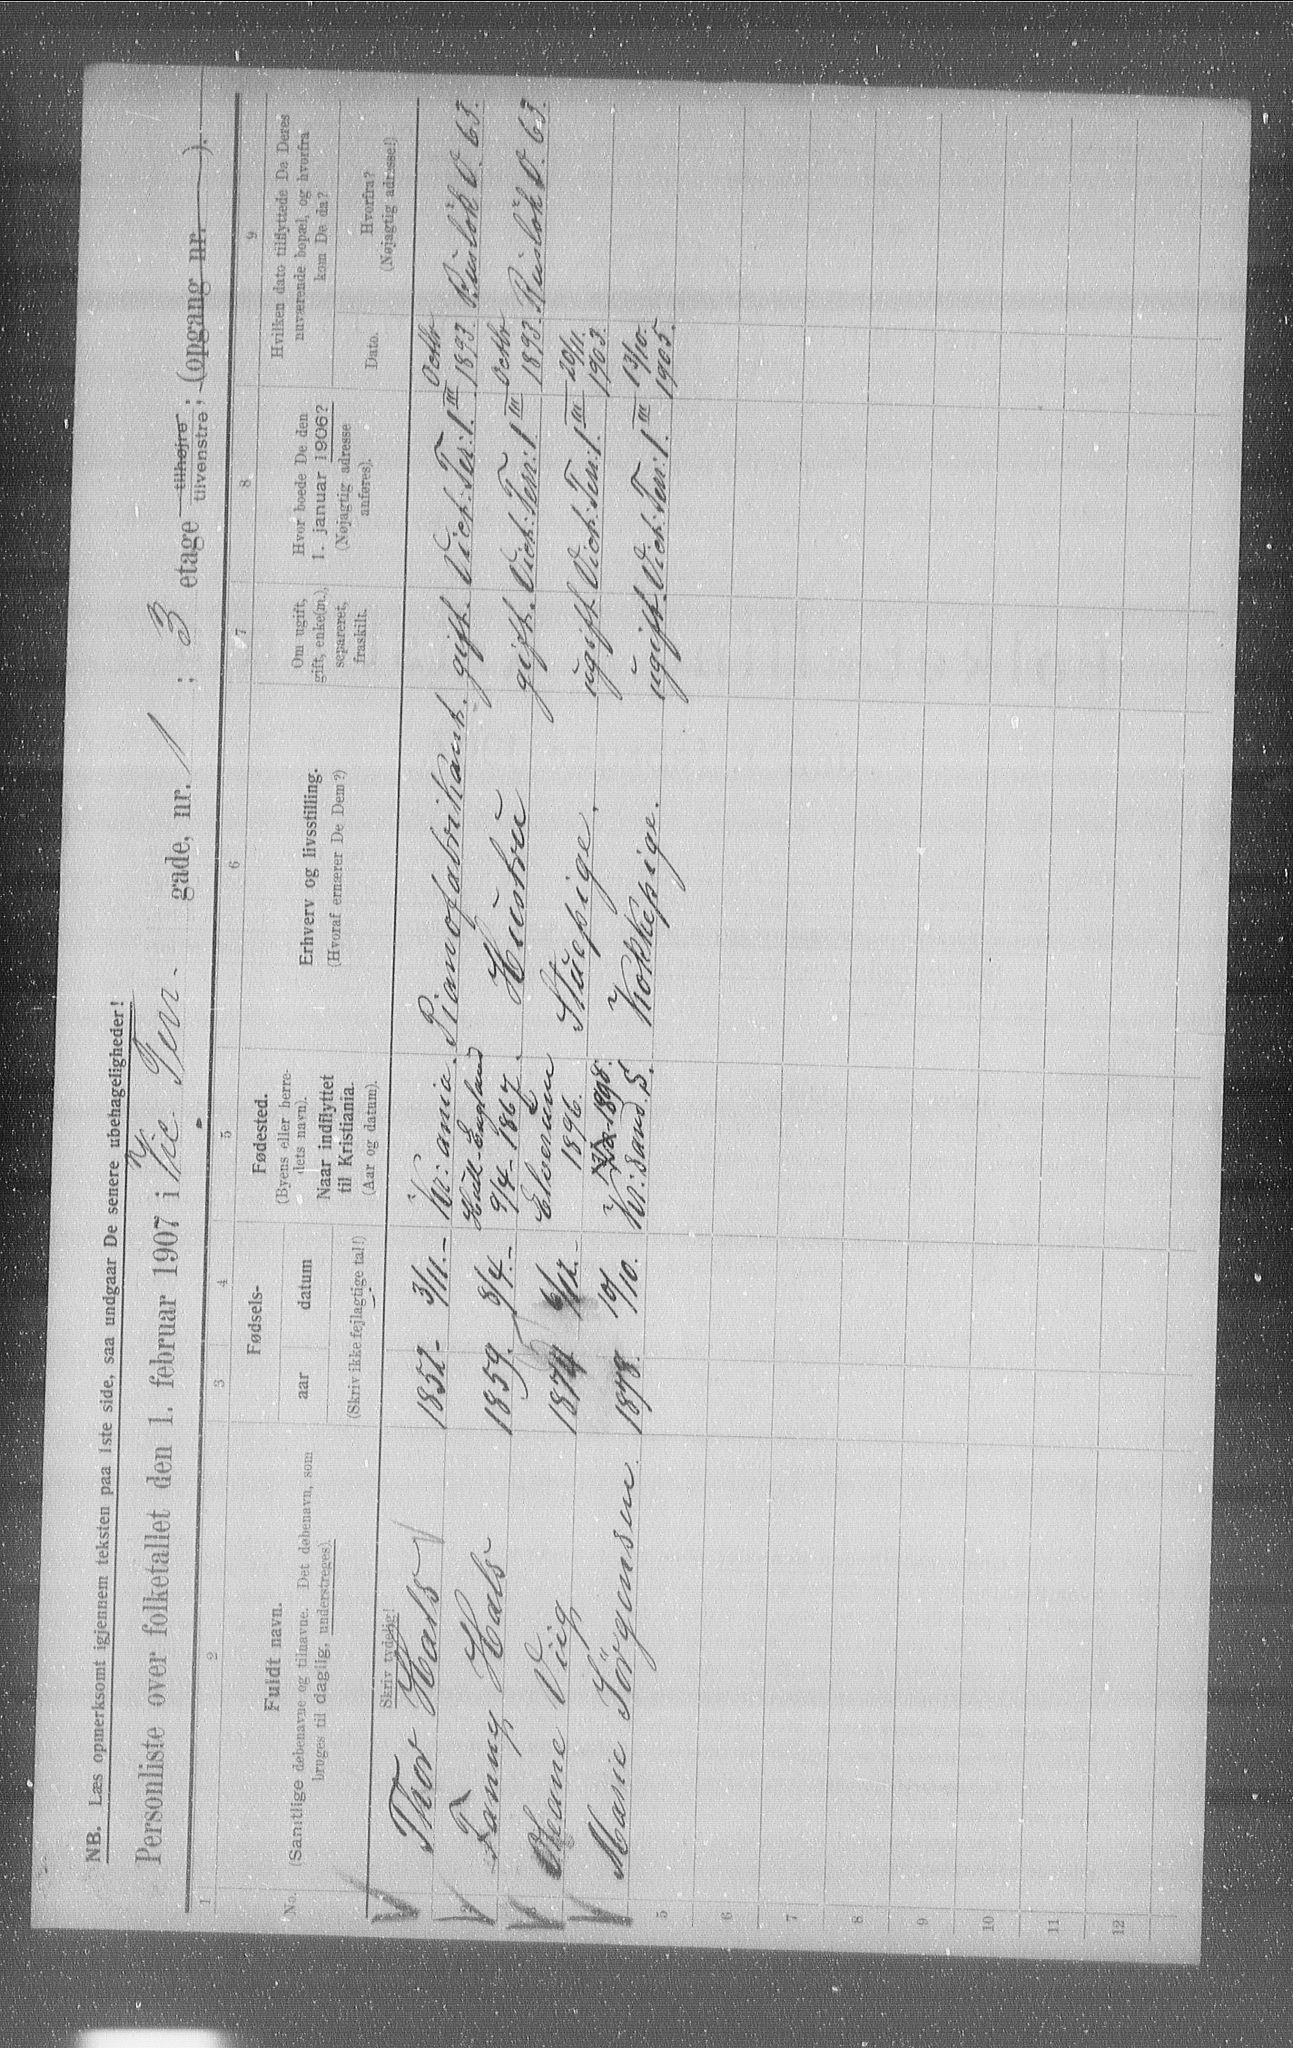 NB. Læs opmerksomt igjennem teksten paa 1ste side, saa undgaar De senere ubehageligheder!
Personliste over folketallet den 1. februar 1907 i Vic. Terr. gade, nr. 1 ; 3 etage tilhøjre tilvenstre ; (opgang nr. ).
1 2 3 4 5 6 7 8 9
No.
Fuldt navn.
(Samtlige døbenavne og tilnavne. Det døbenavn, som
bruges til daglig, understreges).
Skriv tydelig!
Fødsels-
aar datum
(Skriv ikke fejlagtige tal!)
Fødested.
(Byens eller herre-
dets navn).
Naar indflyttet
til Kristiania.
(Aar og datum).
Erhverv og livsstilling.
(Hvoraf ernærer De Dem?)
Om ugift,
gift, enke(m.),
separeret,
fraskilt.
Hvor boede De den
1. januar 1906?
(Nøjagtig adresse
anføres).
Hvilken dato tilflyttede De Deres
nuværende bopæl, og hvorfra
kom De da?
Dato.
Hvorfra?
(Nøjagtig adresse!)
Thor Hals 1852 3/11. Kr:ania. Pianofabrikant. gift. Vict: Ter: 1. III Octbr 1893 Rusløk V. 63.
Fanny Hals 1859. 8/4. Hull-England 9/4-1867. Hustru gift. Vict: Terr: 1. III Octbr 1893. Rusløk V. 63.
Oleane Viig 1874 6/12. Elverum 1896. Stuepige. ugift Vict: Terr: 1. III 20/11. 1903.
Marie Jörgensen 1878. 10/10. 1898. Kr:sand. S. Kokkepige. ugift. Vict: Terr: 1. III 13/10. 1905.
5
6
7
8
9
10
11
12